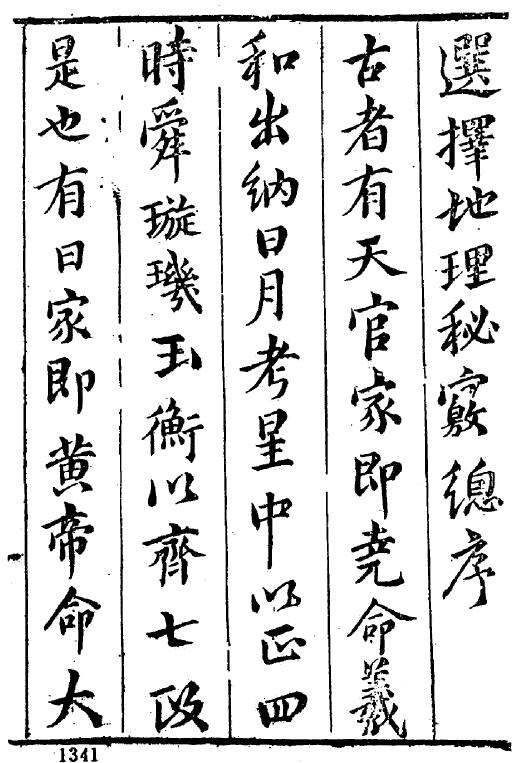 選擇地理秘竅總序
古者有天官家即堯命羲
和出納日月考星中以正四
時舜璇璣玉衡以齊七政
是也有日家即黃帝命大
1341